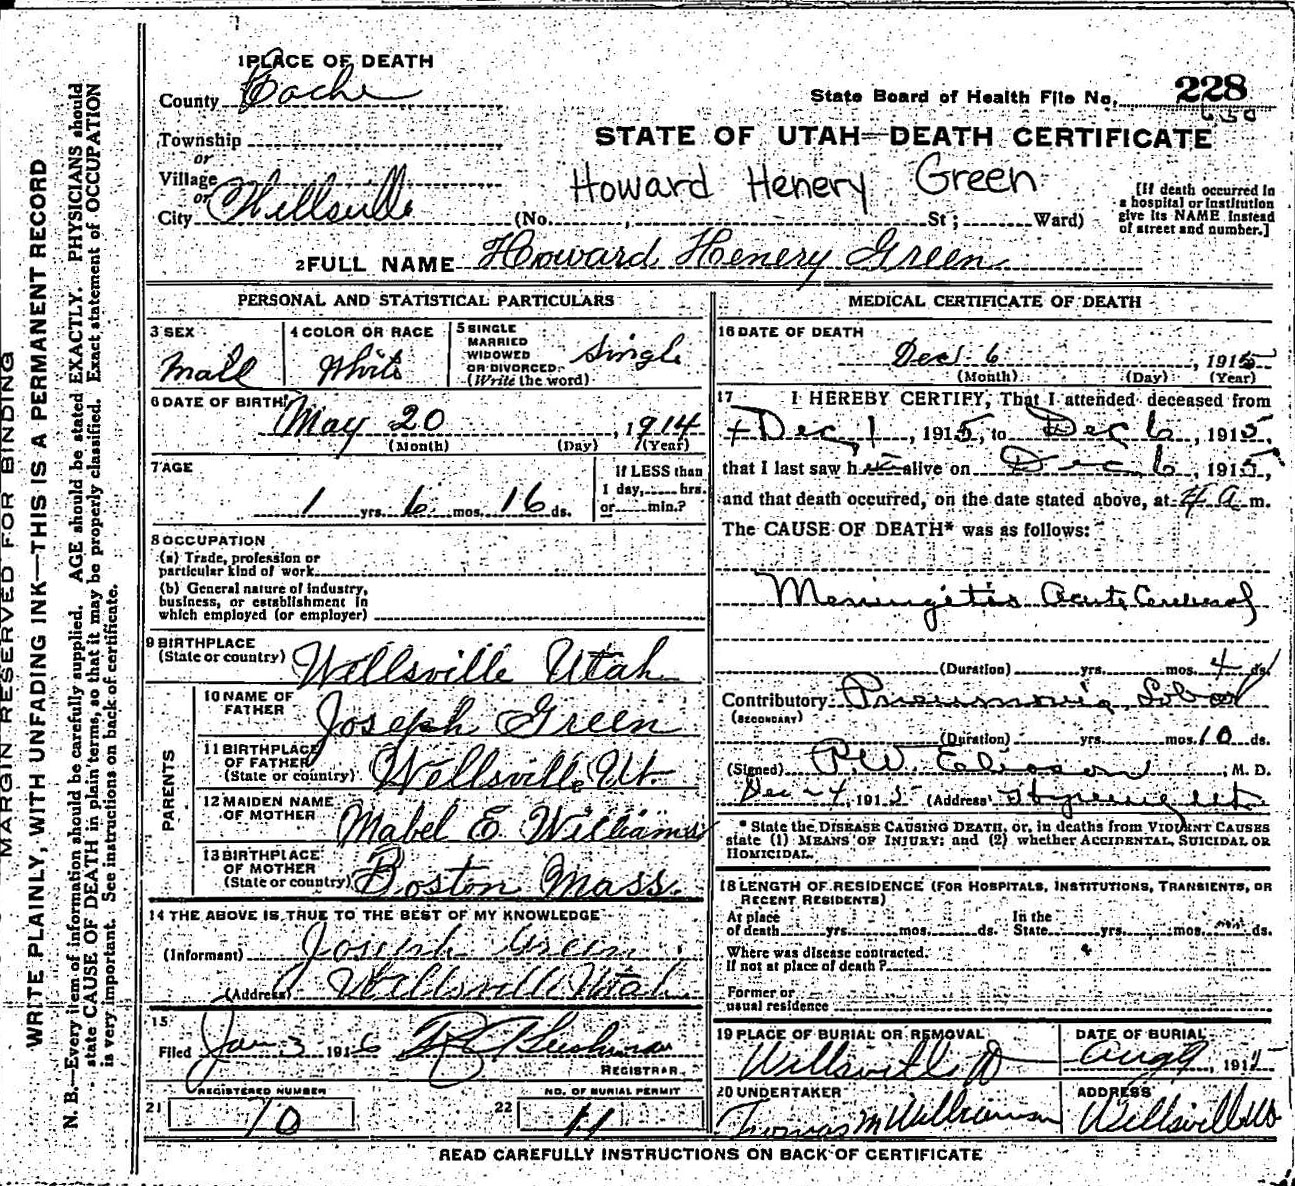 1 PLACE OF DEATH
County Cache
State Board of Health File No. 228
Township
STATE OF UTAH—DEATH CERTIFICATE
or
Village
Howard Henery Green
or
City Wellsville (No. , St; Ward)
[If death occurred in a hospital or institution give its NAME instead of street and number.]
2 FULL NAME Howard Henery Green
PERSONAL AND STATISTICAL PARTICULARS
3 SEX
Male
4 COLOR OR RACE
White
5 SINGLE
MARRIED
WIDOWED
OR DIVORCED
(Write the word)
Single
6 DATE OF BIRTH
May 20, 1914
(Month) (Day) (Year)
7 AGE
1 yrs. 6 mos. 16 ds.
If LESS than
1 day, hrs.
or min.?
8 OCCUPATION
(a) Trade, profession or
particular kind of work
(b) General nature of industry,
business, or establishment in
which employed (or employer)
9 BIRTHPLACE
(State or country) Wellsville Utah
PARENTS
10 NAME OF
FATHER Joseph Green
11 BIRTHPLACE
OF FATHER
(State or country) Wellsville Ut.
12 MAIDEN NAME
OF MOTHER Mabel E. Williams
13 BIRTHPLACE
OF MOTHER
(State or country) Boston Mass.
14 THE ABOVE IS TRUE TO THE BEST OF MY KNOWLEDGE
(Informant) Joseph Green
(Address) Wellsville Utah
15
Filed Jan 3 1916
REGISTRAR
REGISTERED NUMBER
21 10
NO. OF BURIAL PERMIT
22 11
MEDICAL CERTIFICATE OF DEATH
16 DATE OF DEATH
Dec 6, 1915
(Month) (Day) (Year)
17 I HEREBY CERTIFY, That I attended deceased from
Dec 1, 1915, to Dec 6, 1915,
that I last saw h alive on Dec 6, 1915,
and that death occurred, on the date stated above, at 4 a m.
The CAUSE OF DEATH* was as follows:
Meningitis Acute Cerebral
(Duration) yrs. mos. 4 ds.
Contributory Pneumonia Lobar
(SECONDARY)
(Duration) yrs. mos. 10 ds.
(Signed) , M. D.
Dec 24, 1915 (Address)
* State the DISEASE CAUSING DEATH, or, in deaths from VIOLENT CAUSES
state (1) MEANS OF INJURY; and (2) whether ACCIDENTAL, SUICIDAL OR
HOMICIDAL.
18 LENGTH OF RESIDENCE (FOR HOSPITALS, INSTITUTIONS, TRANSIENTS, OR
RECENT RESIDENTS)
At place
of death yrs. mos. ds.
In the
State yrs. mos. ds.
Where was disease contracted.
If not at place of death?
Former or
usual residence
19 PLACE OF BURIAL OR REMOVAL
Wellsville
DATE OF BURIAL
Aug 9, 1915
20 UNDERTAKER
Thomas M Williamson
ADDRESS
Wellsville
READ CAREFULLY INSTRUCTIONS ON BACK OF CERTIFICATE
MARGIN RESERVED FOR BINDING
WRITE PLAINLY, WITH UNFADING INK—THIS IS A PERMANENT RECORD
N. B.—Every item of information should be carefully supplied. AGE should be stated EXACTLY. PHYSICIANS should
state CAUSE OF DEATH in plain terms, so that it may be properly classified. Exact statement of OCCUPATION
is very important. See instructions on back of certificate.